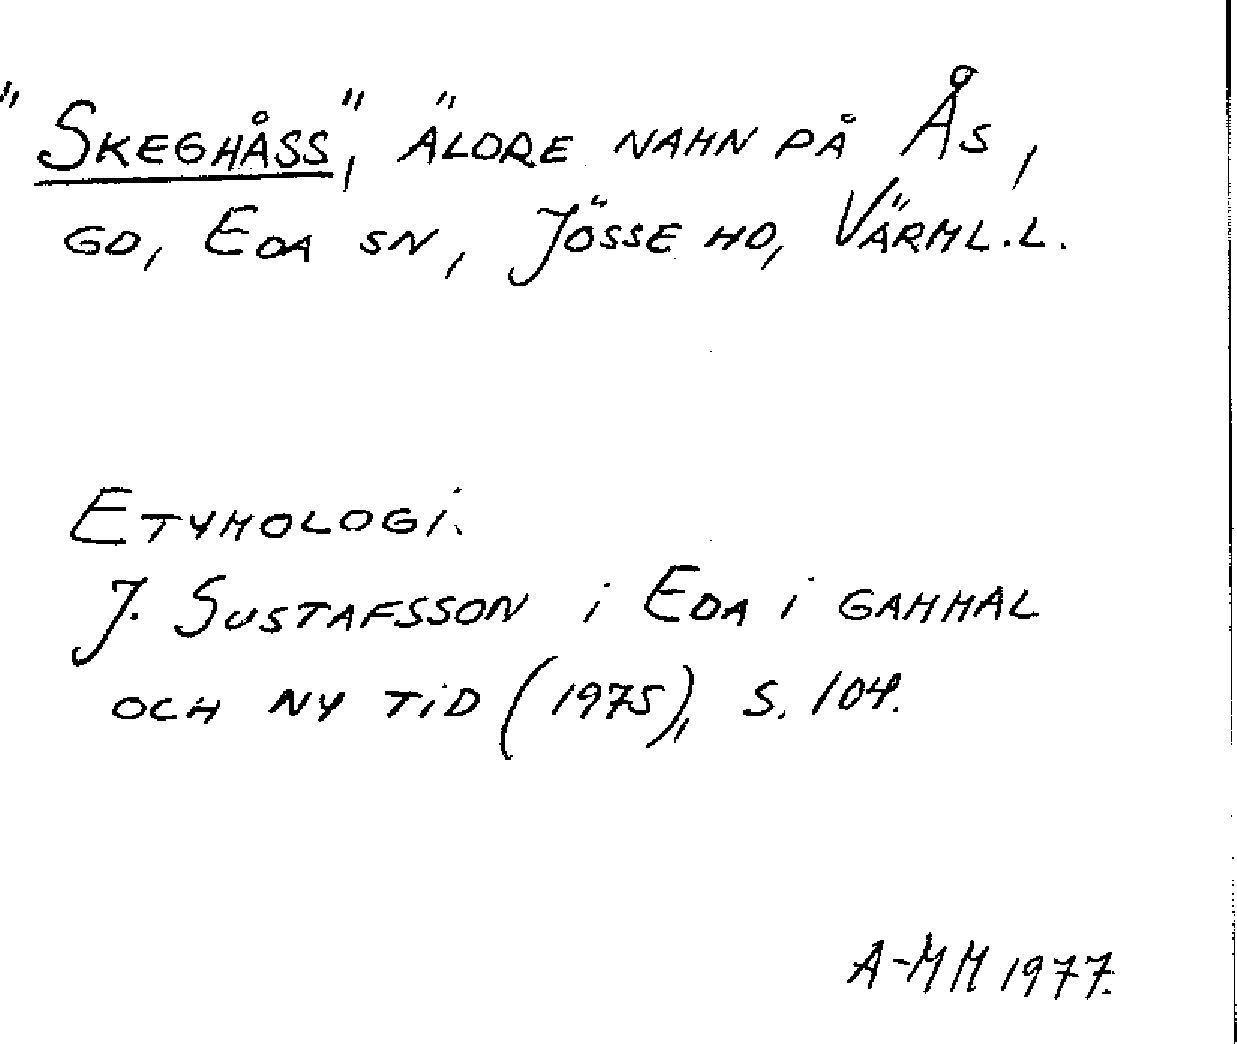 "Skeghåss", äldre namn på Ås,
gd, Eda sn, Jösse hd, Värml.l.
Etymologi.
J. Gustafsson i Eda i gammal
och ny tid (1975), s. 104.
A-MM 1977.